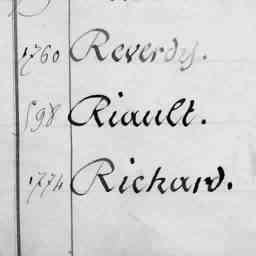 1760 Reverdy.
598 Riault.
1774 Richard.